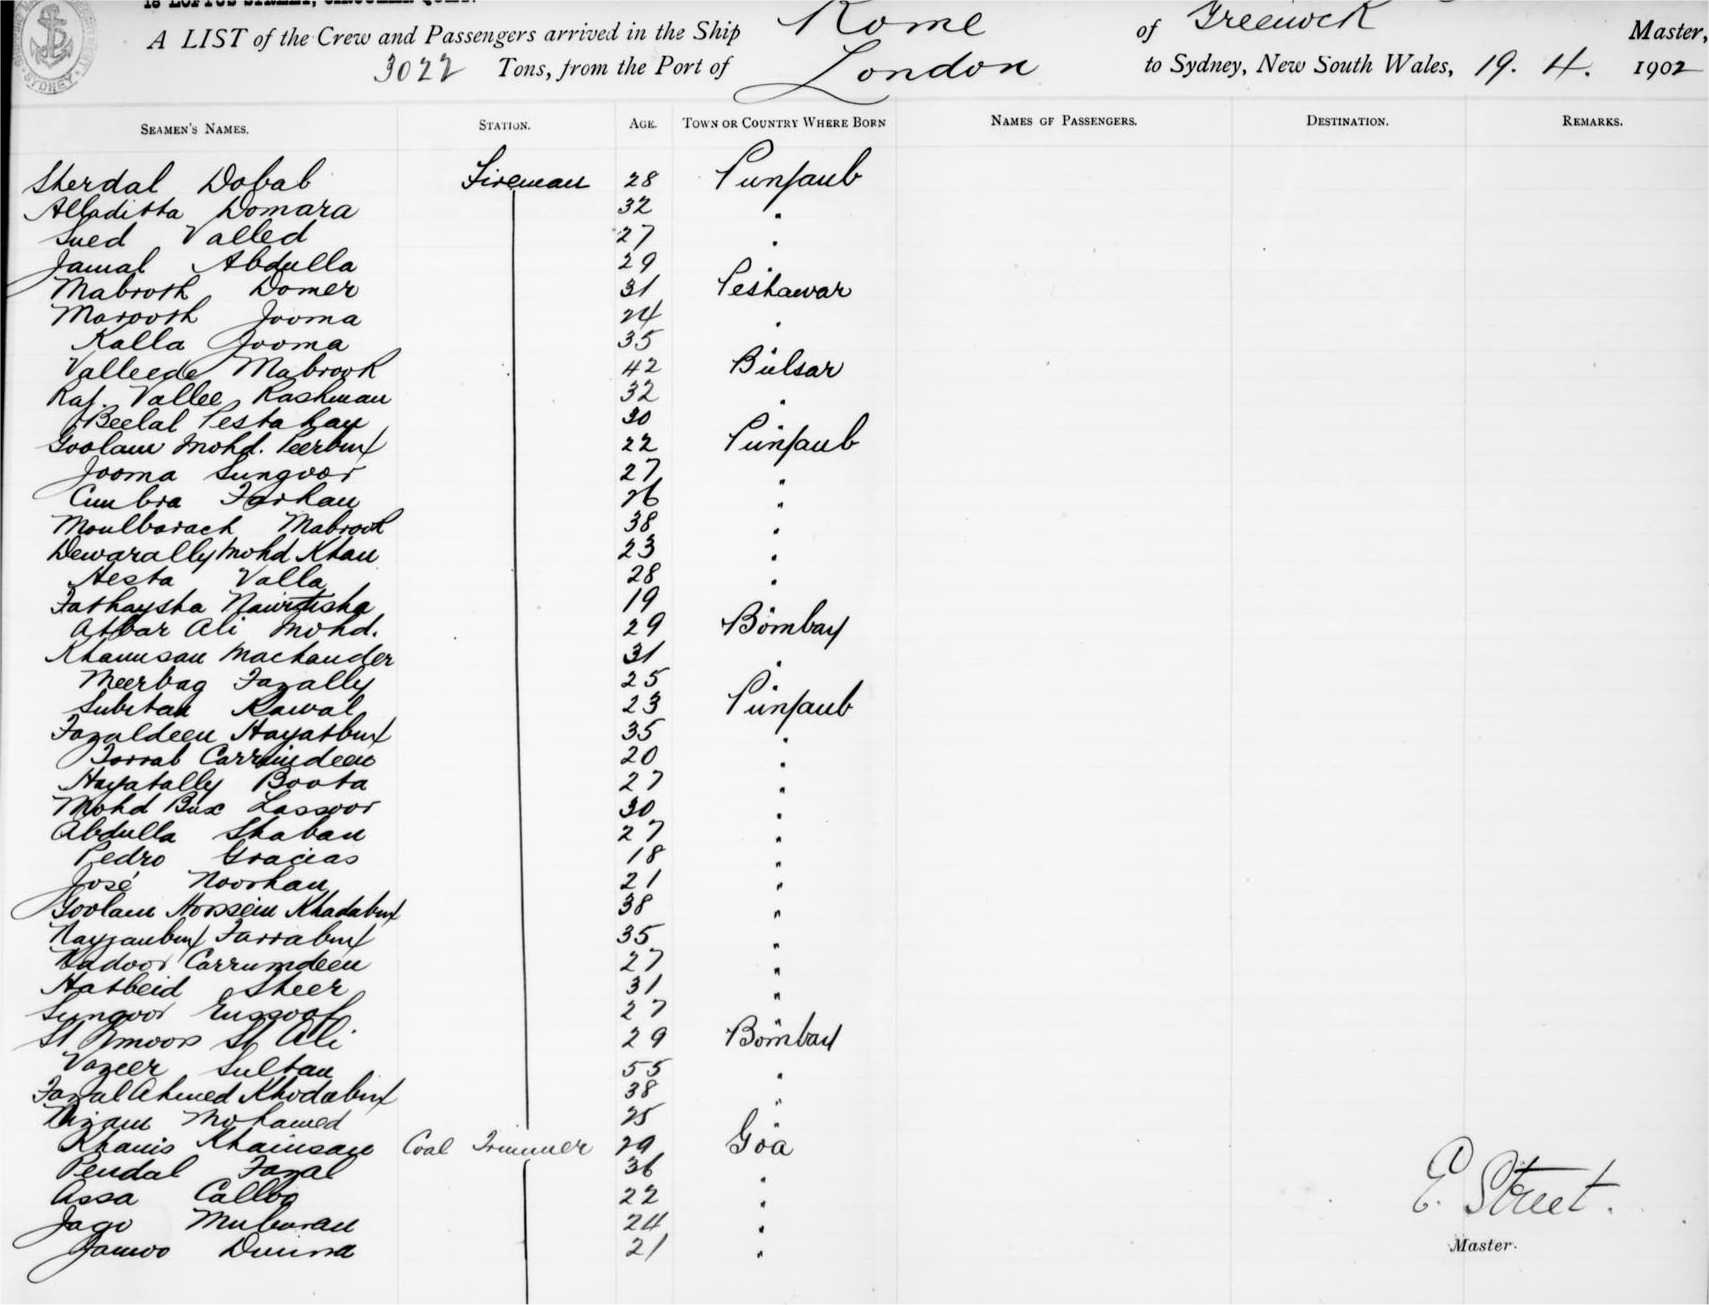 18 LOFTUS STREET, CIRCULAR QUAY.
A LIST of the Crew and Passengers arrived in the Ship Rome of Greenock Master,
3022 Tons, from the Port of London to Sydney, New South Wales, 19. 4. 1902
SEAMEN'S NAMES. STATION. AGE. TOWN OR COUNTRY WHERE BORN NAMES OF PASSENGERS. DESTINATION. REMARKS.
Sherdal Dobab Fireman 28 Punjaub
Alladitta Domara 32 "
Sued Valled 27 "
Jamal Abdulla 29 "
Mabrook Domer 31 Peshawar
Marooth Jooma 24 "
Kalla Jooma 35 "
Valleede Mabrook 42 Bulsar
Raj. Vallee Rashman 32 "
Beelal Pesta 30 "
Goolam Mohd. Peerbux 22 Punjaub
Jooma Sungoor 27 "
Cumbra Farhan 26 "
Moulbarach Mabrook 38 "
Dewarally Mohd Khan 23 "
Hesta Valla 28 "
Fathaysha 19 "
Atbar Ali Mohd. 29 Bombay
Khamisan Machander 31 "
Meerbag Fazally 25 "
Subitan Rawal 23 Punjaub
Fazaldeen Hayatbux 35 "
Torrab Carrimdeen 20 "
Hayatally Boota 27 "
Mohd Bux Lassoor 30 "
Abdulla Shaban 27 "
Pedro Gracias 18 "
José Noorhan 21 "
Goolam Hossein Khadabux 38 "
Nayjanbux Farrabux 35 "
Nadoor Carrumdeen 27 "
Hatbeid Sheer 31 "
Sungoor Eussoof 27 "
St Ali 29 Bombay
Vazeer Sultan 55 "
Fazal Ahmed Khodabux 38 "
Nizam Mohamed 25 "
Khamis Khamisan Coal Trimmer 29 Goa
Pendal Fazal 36 "
Assa Calloo 22 "
Jago Muburan 24 "
Jamoo Dunna 21 "
E. Street.
Master.